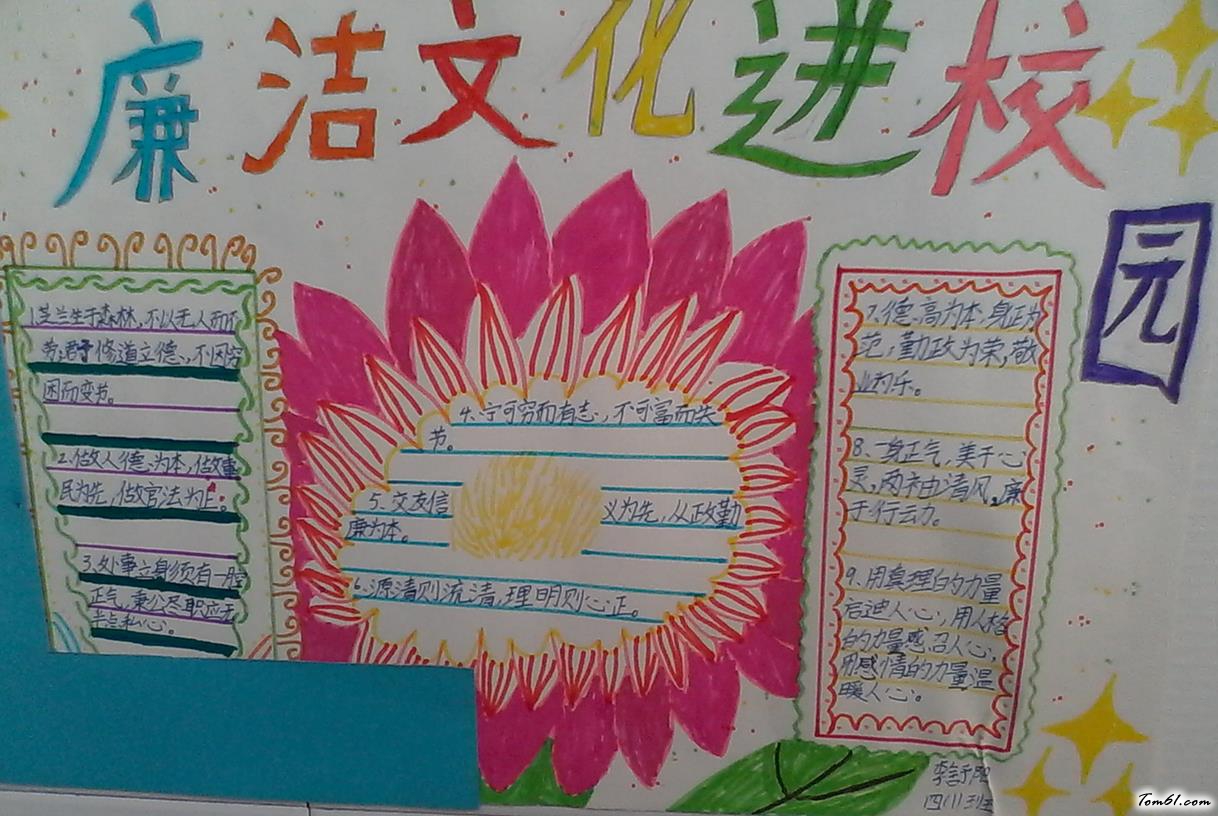 廉洁文化进校
园
1.芝兰生于森林,不以无人而不
芳;君子修道立德、不因穷
困而变节。
2.做人德、为本,做事
民为先,做官法为正。
3、处事立身须有一腔
正气,秉公尽职应无
半点私心。
4、宁可穷而有志,不可富而失
节。
5、交友信义为先,从政勤
廉为本。
6、源清则流清,理明则心正。
7、德、高为本,身正为
范,勤政为荣,敬
业为乐。
8、一身正气,美于心
灵,两袖清风。廉
于行动。
9、用真理的力量
启迪人心,用人格
的力量感召人心,
用感情的力量温
暖人心。
四(1)班
Tom61.com